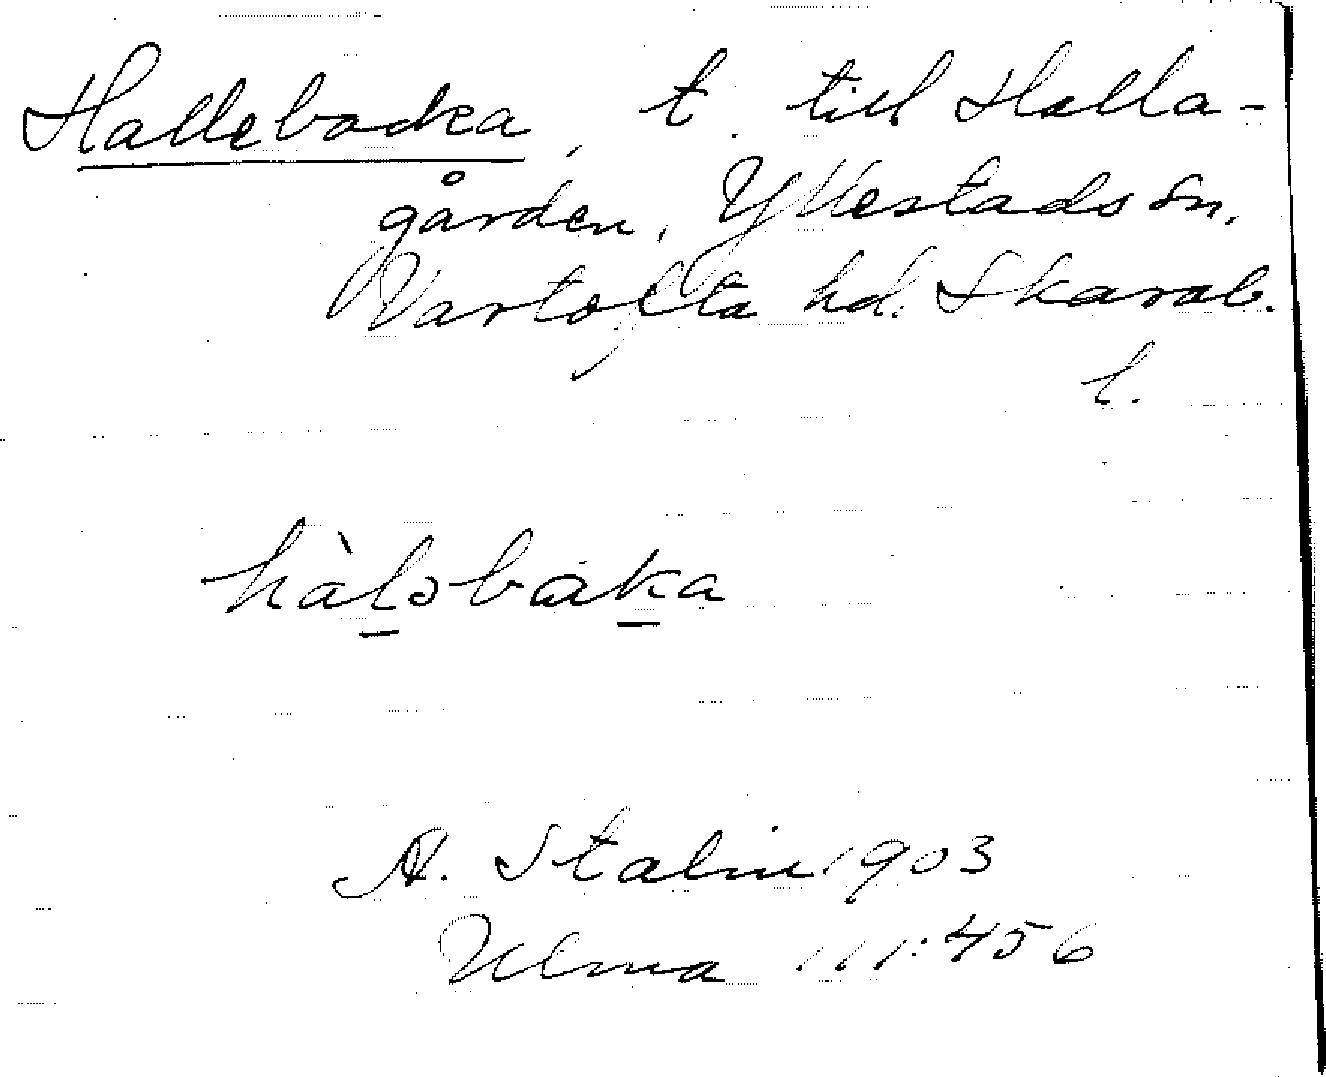 Hallebacka, t. till Halla-
gården, Yllestads sn,
Vartofta hd. Skarab.
l.
hàləbaka
A. Stalin 1903
Ulma 111:456